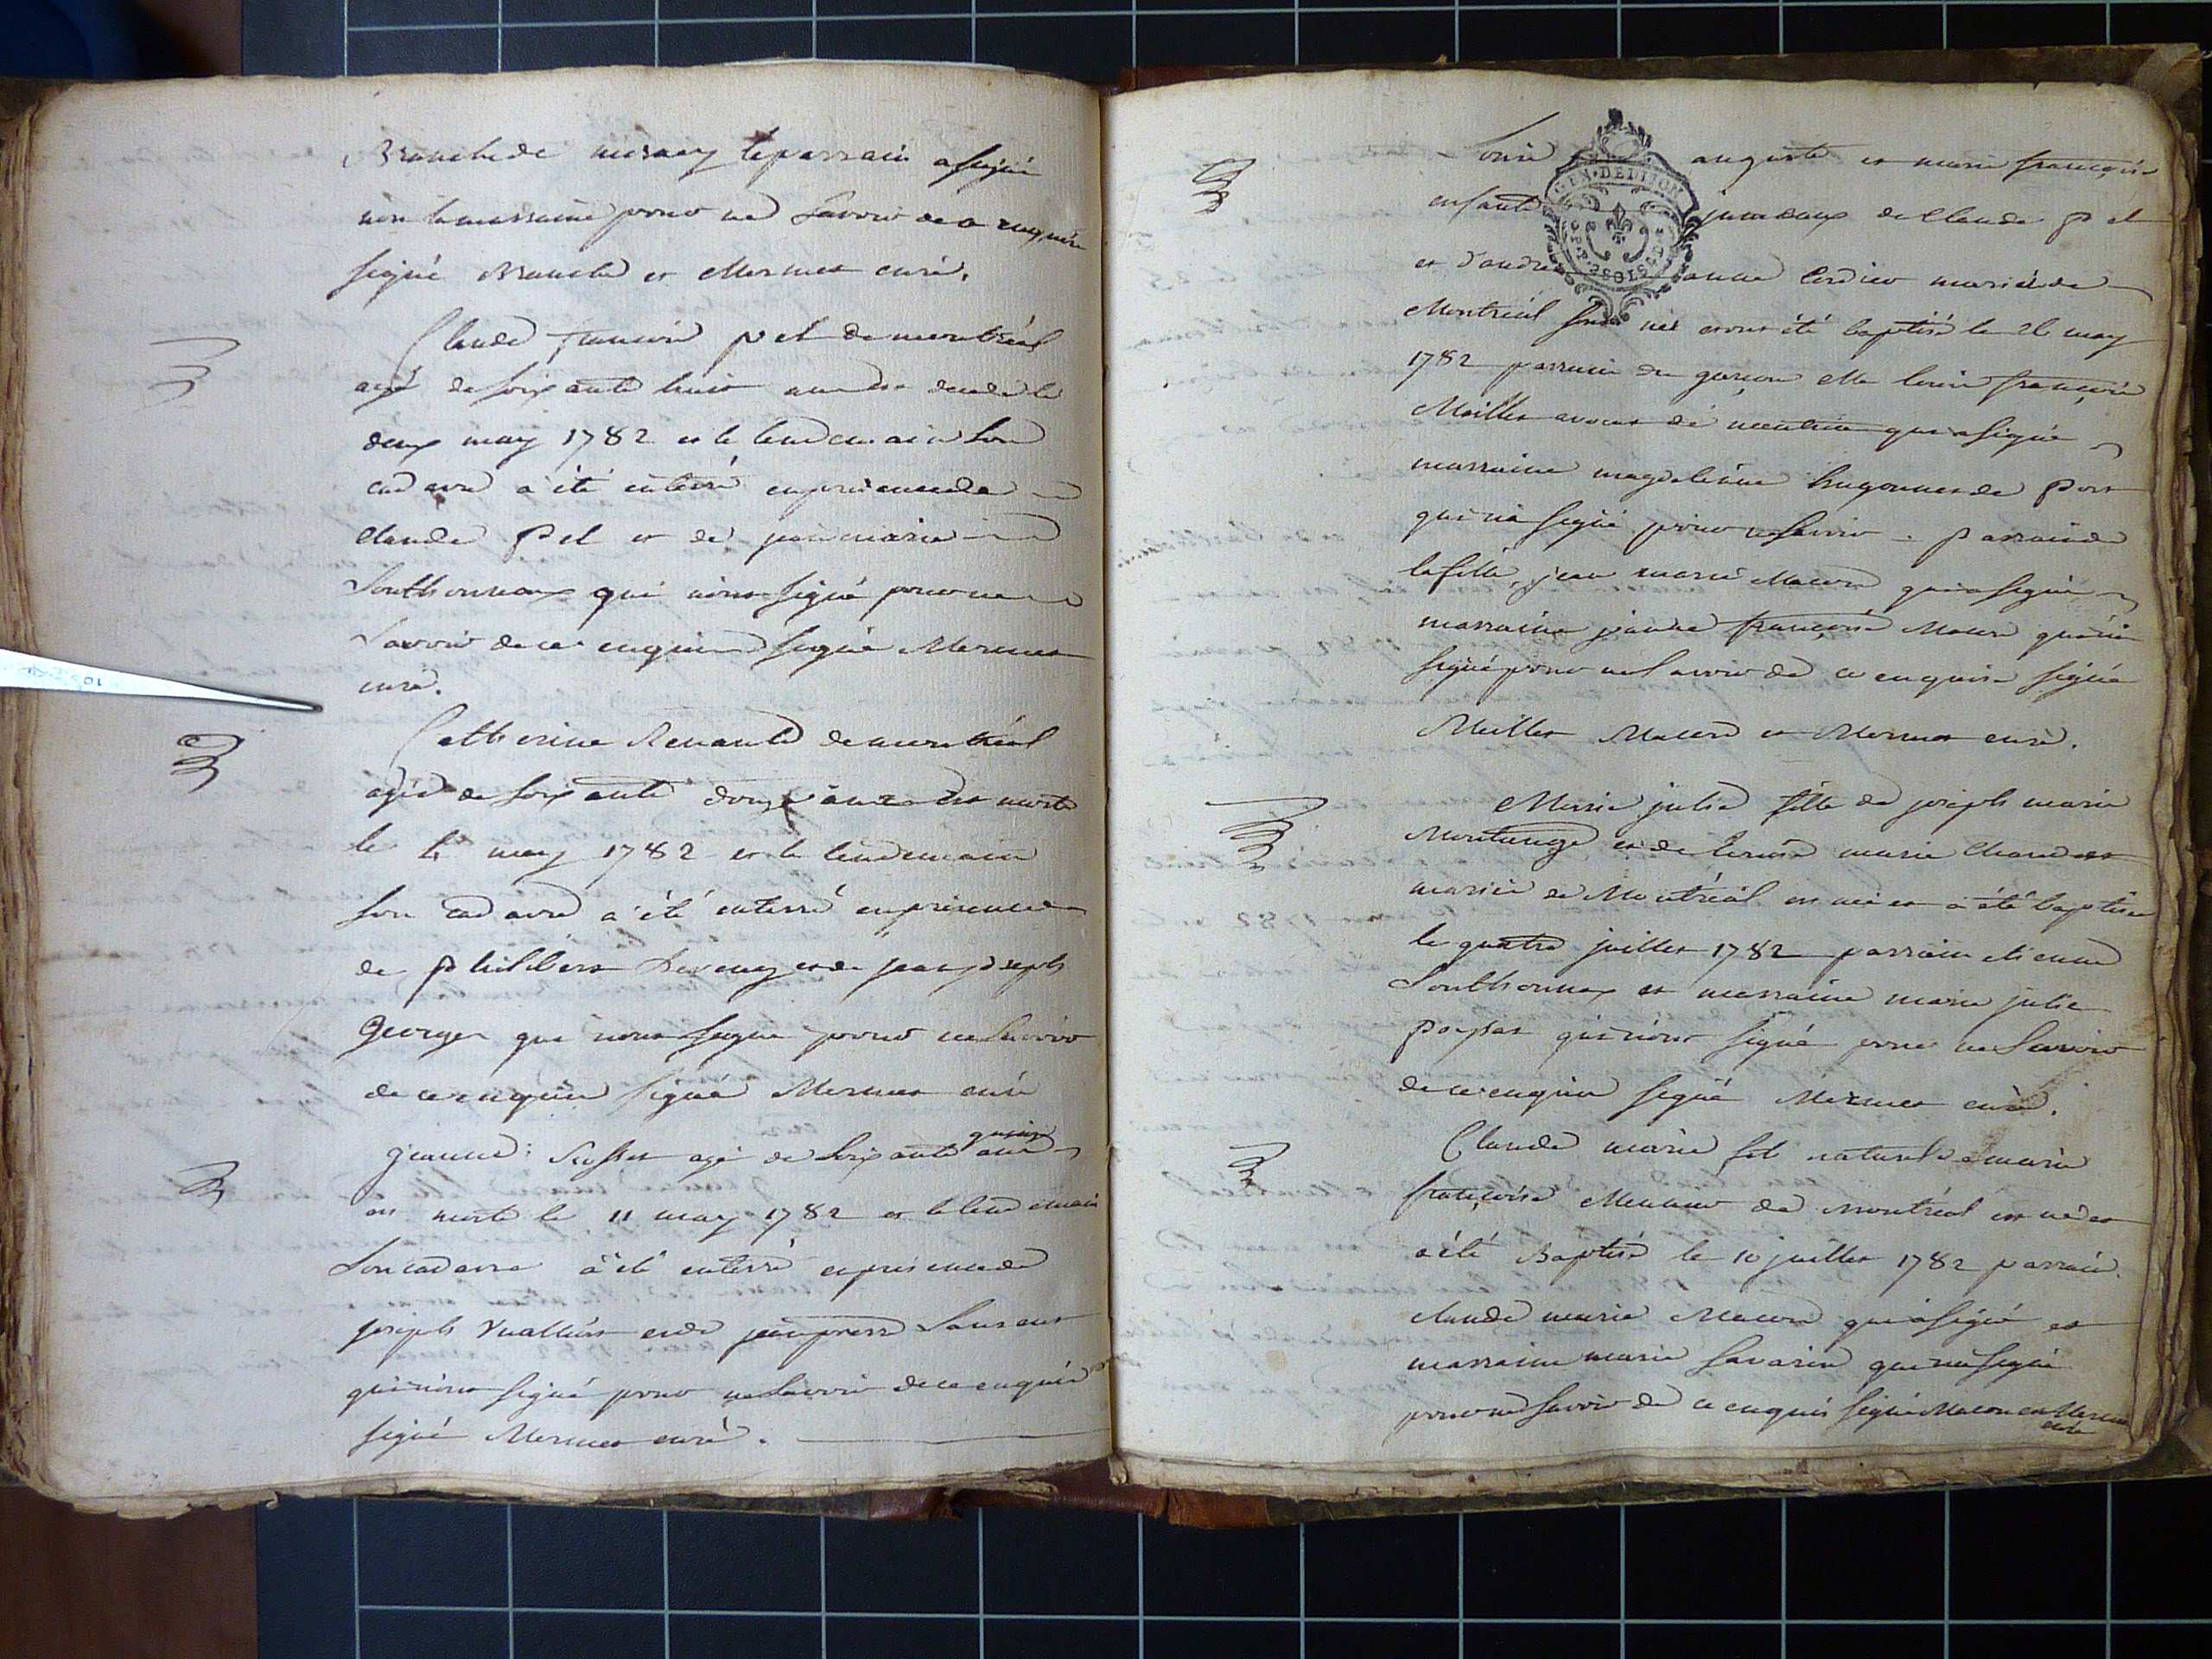 le parrain a signé
non la marraine pour ne savoir de ce enquise
signé Branche et Mermet curé.
Claude françois pel de montréal
agé de soixante huit ans est decedé le
deux may 1782 et le lendemain son
cadavre a été enterré en presence de
claude pel et de jean marie
Southonnax qui n'ont signé pour ne
savoir de ce enquis signé Mermet
curé.
Catherine Renaud de montréal
agée de soixante douze ans est morte
le 4 may 1782 et le lendemain
son cadavre a été enterré en presence
de philibert et de jean joseph
George qui n'ont signé pour ne savoir
de ce enquis signé Mermet curé
quinze
agé de soixante ans
est morte le 11 may 1782 et le lendemain
son cadavre a été enterré en presence de
joseph et de
qui n'ont signé pour ne savoir de ce enquis
signé Mermet curé.
GEN. DELIJON
Louis auguste et marie françoise
enfants jumeaux de claude pel
et d'andrea anne mariés de
Montréal sont nés et ont été baptisé le 26 may
1782 parrain du garçon Me louis françois
Maillet avocat de nantua qui a signé
marraine magdeleine hugonnet de port
qui n'a signé pour ne savoir parrain de
la fille jean marie Macon qui a signé
marraine jeanne françoise Macon qui n'a
signé pour ne savoir de ce enquise signé
Maillet Macon et Mermet curé.
Marie julie fille de joseph marie
Montange et de marie
mariés de Montréal est née et a été baptisée
le quatre juillet 1782 parrain etienne
Southonnax et marraine marie julie
qui n'ont signé pour ne savoir
de ce enquis signé Mermet curé.
Claude marie fils naturel de marie
françoise de montréal est né et
a été Baptisé le 10 juillet 1782 parrain
claude marie Macon qui a signé et
marraine marie Savarin qui n'a signé
pour ne savoir de ce enquis signé Macon et Mermet
curé